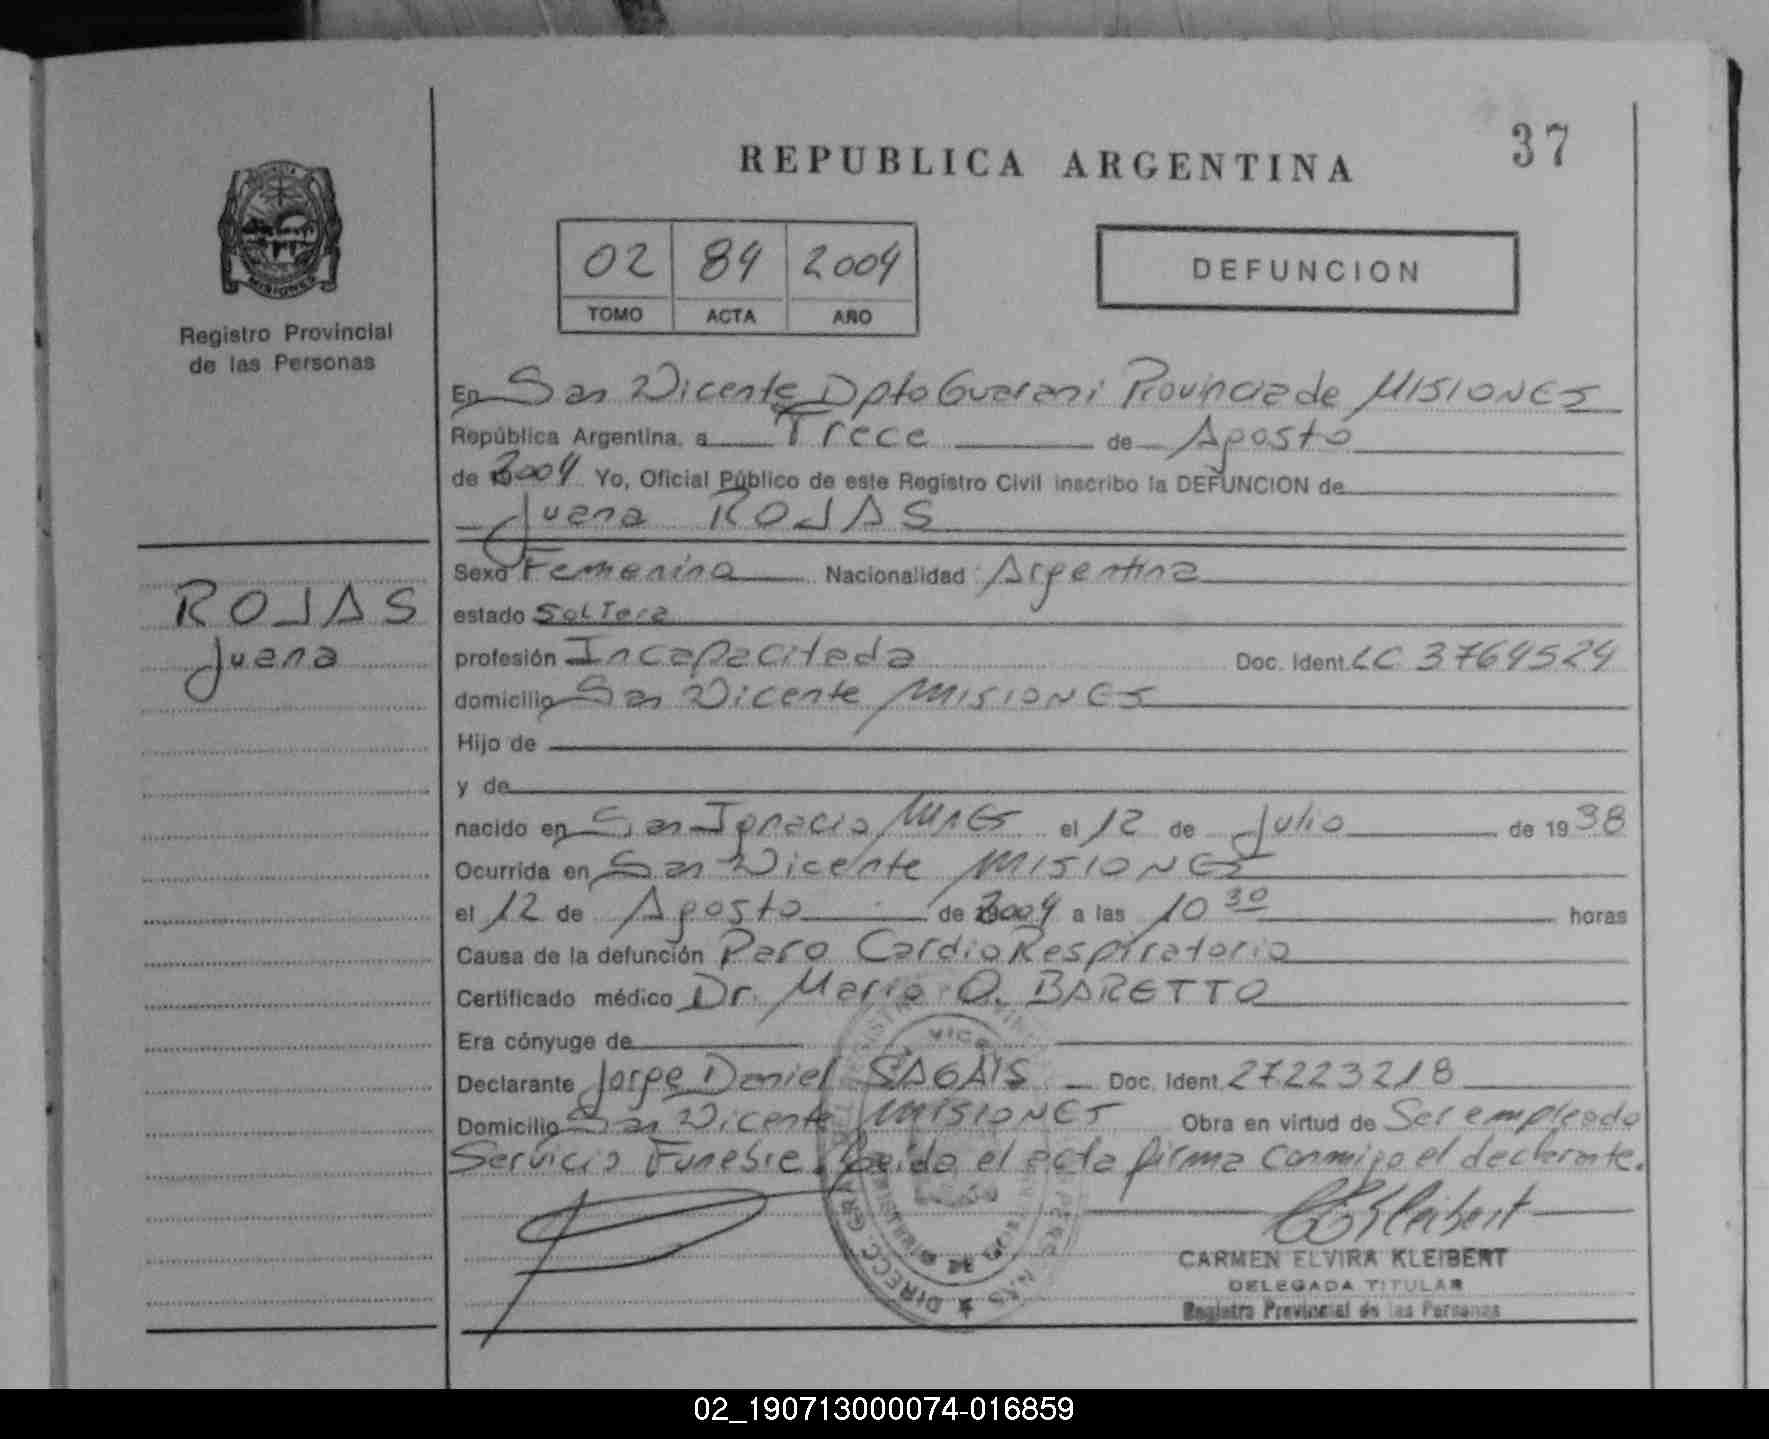 37
REPUBLICA ARGENTINA
MISIONES
Registro Provincial
de las Personas
02 84 2004
TOMO ACTA AÑO
DEFUNCION
ROJAS
Juana
En San Vicente Dpto Guarani Provincia de MISIONES
República Argentina, a Trece de Agosto
de 2004 Yo, Oficial Público de este Registro Civil inscribo la DEFUNCION de
Juana ROJAS
Sexo Femenina Nacionalidad Argentina
estado Soltera
profesión Incapacitada Doc. Ident. LC 3764524
domicilio San Vicente MISIONES
Hijo de
y de
nacido en San Ignacio Mnes el 12 de Julio de 1938
Ocurrida en San Vicente MISIONES
el 12 de Agosto de 2004 a las 10 30 horas
Causa de la defunción Paro CardioRespiratorio
Certificado médico Dr. Mario O. BARETTO
Era cónyuge de
Declarante Jorge Daniel SAGAIS Doc. Ident. 27223218
Domicilio San Vicente MISIONES Obra en virtud de Ser empleado
Servicio Funebre. Leida el acta firma conmigo el declarante.
CKleibert
CARMEN ELVIRA KLEIBERT
DELEGADA TITULAR
Registro Provincial de las Personas
02_190713000074-016859